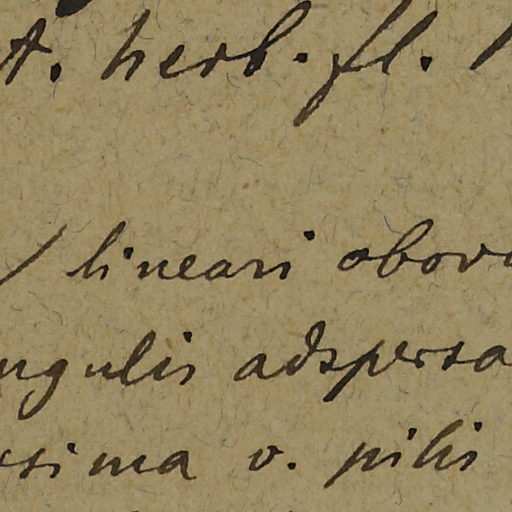 t. herb. fl.
/ lineari obova
ngulis adspersa
ssima v. pilis